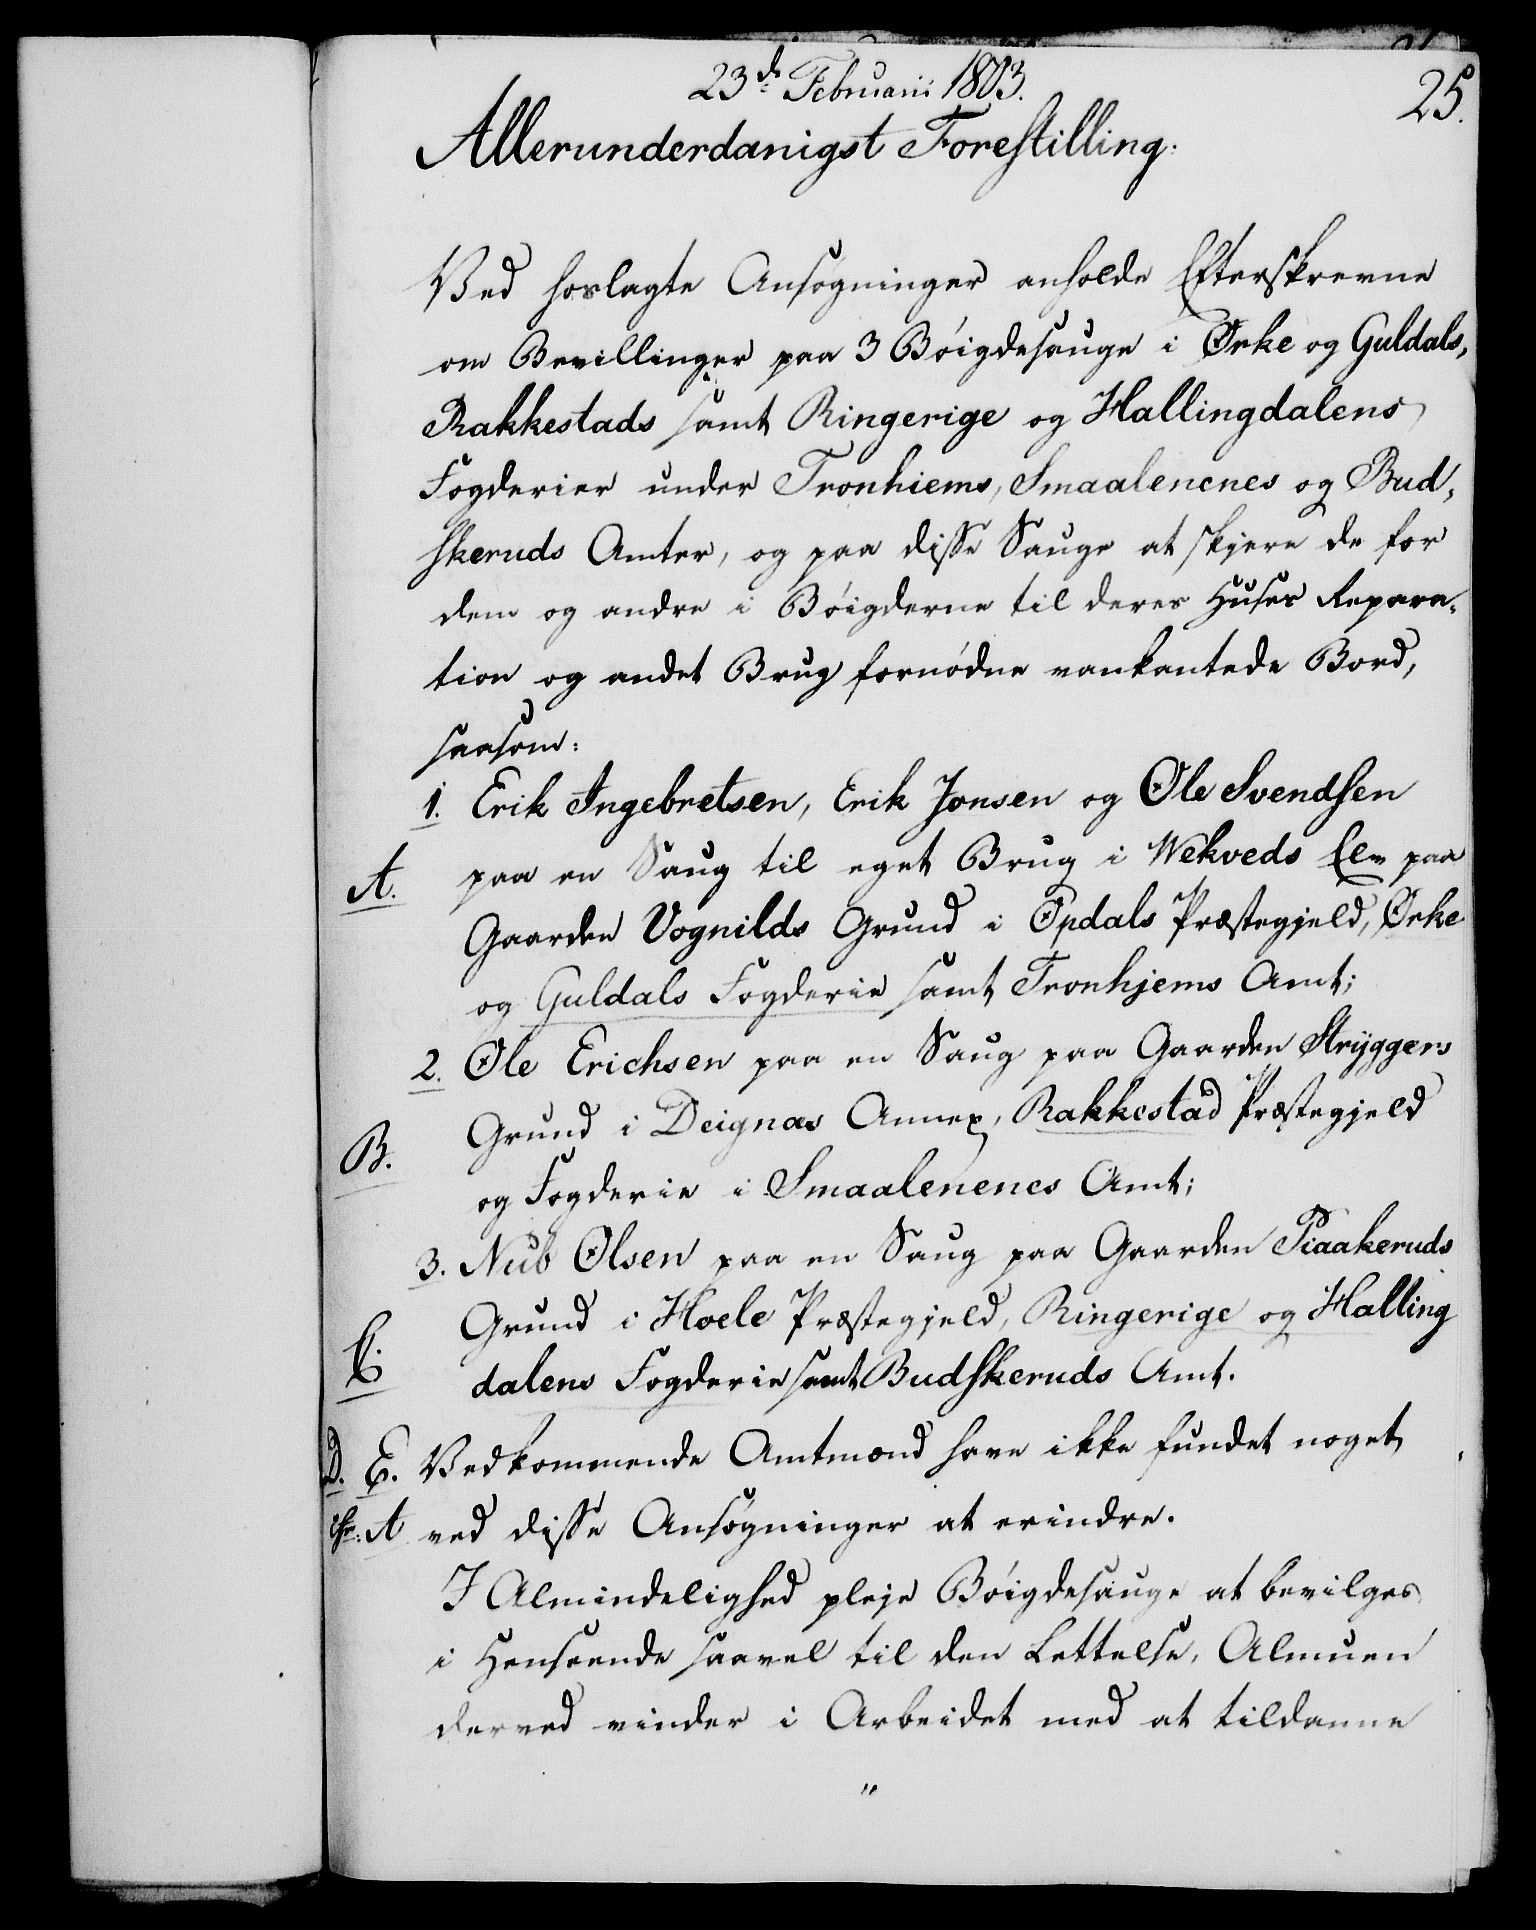 23d. Februarii 1803.
25.
Allerunderdanigst Forestilling.
Ved hoslagte Ansøgninger anholde Efterskrevne
om Bevillinger paa 3 Bøigdesauge i Ørke og Guldals,
Rakkestads samt Ringerige og Hallingdalens
Fogderier under Tronhiems, Smaalenenes og Bud,
skeruds Amter, og paa disse Sauge at skjere de for
dem og andre i Bøigderne til deres Huses Repara,
tion og andet Brug fornødne vankantede Bord,
saasom:
1. Erik Ingebretsen, Erik Jonsen og Ole Svendsen
A. paa en Saug til eget Brug i Wekveds Elv paa
Gaarden Vognilds Grund i Opdals Præstegjeld, Ørke
og Guldals Fogderie samt Tronhjems Amt;
2. Ole Erichsen paa en Saug paa Gaarden Stryggers
B. Grund i Deignæs Annex, Rakkestad Præstegjeld
og Fogderie i Smaalenenes Amt;
3. Nub Olsen paa en Saug paa Gaarden Piaakeruds
Grund i Hoele Præstegjeld, Ringerige og Halling
C. dalens Fogderie samt Budskeruds Amt.
D. E. Vedkommende Amtmænd have ikke fundet noget
cfr: A ved disse Ansøgninger at erindre.
I Almindelighed pleje Bøigdesauge at bevilges
i Henseende saavel til den Lettelse, Almuen
derved vinder i Arbeidet med at tildanne
"